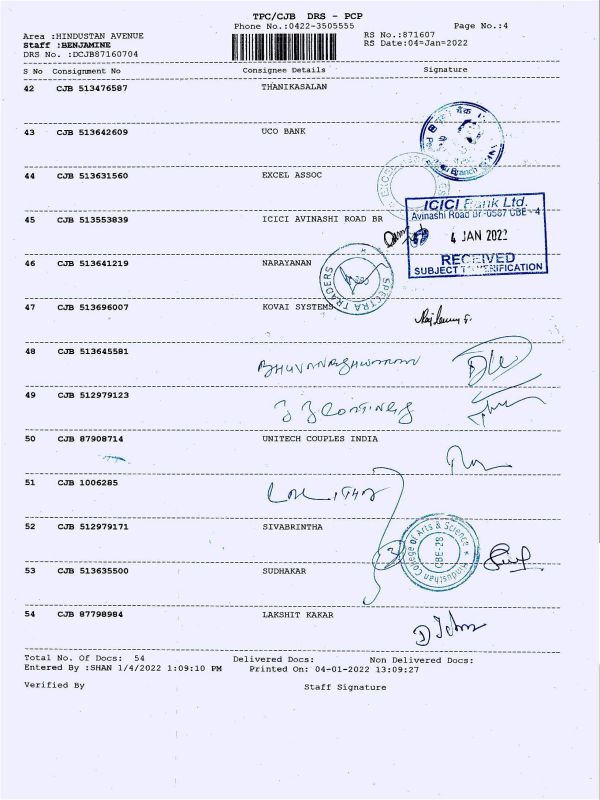 TPC/CJB DRS - PCP
Phone No.:0422-3505555
Page No.:4
Area :HINDUSTAN AVENUE
RS No.:871607
Staff :BENJAMINE
RS Date:04=Jan=2022
DRS No. :DCJB87160704
S No Consignment No Consignee Details Signature
42 CJB 513476587 THANIKASALAN
43 CJB 513642609 UCO BANK
44 CJB 513631560 EXCEL ASSOC
ICICI Bank Ltd.
45 CJB 513553839 ICICI AVINASHI ROAD BR
Avinashi Road Br-0587 CBE - 4
4 JAN 2022
RECEIVED
SUBJECT TO VERIFICATION
46 CJB 513641219 NARAYANAN
SPECTRA TRADERS
47 CJB 513696007 KOVAI SYSTEMS
48 CJB 513645581
49 CJB 512979123
50 CJB 87908714 UNITECH COUPLES INDIA
51 CJB 1006285
52 CJB 512979171 SIVABRINTHA
Hindusthan College of Arts & Science
CBE-28
53 CJB 513635500 SUDHAKAR
54 CJB 87798984 LAKSHIT KAKAR
Total No. Of Docs: 54 Delivered Docs: Non Delivered Docs:
Entered By :SHAN 1/4/2022 1:09:10 PM Printed On: 04-01-2022 13:09:27
Verified By Staff Signature